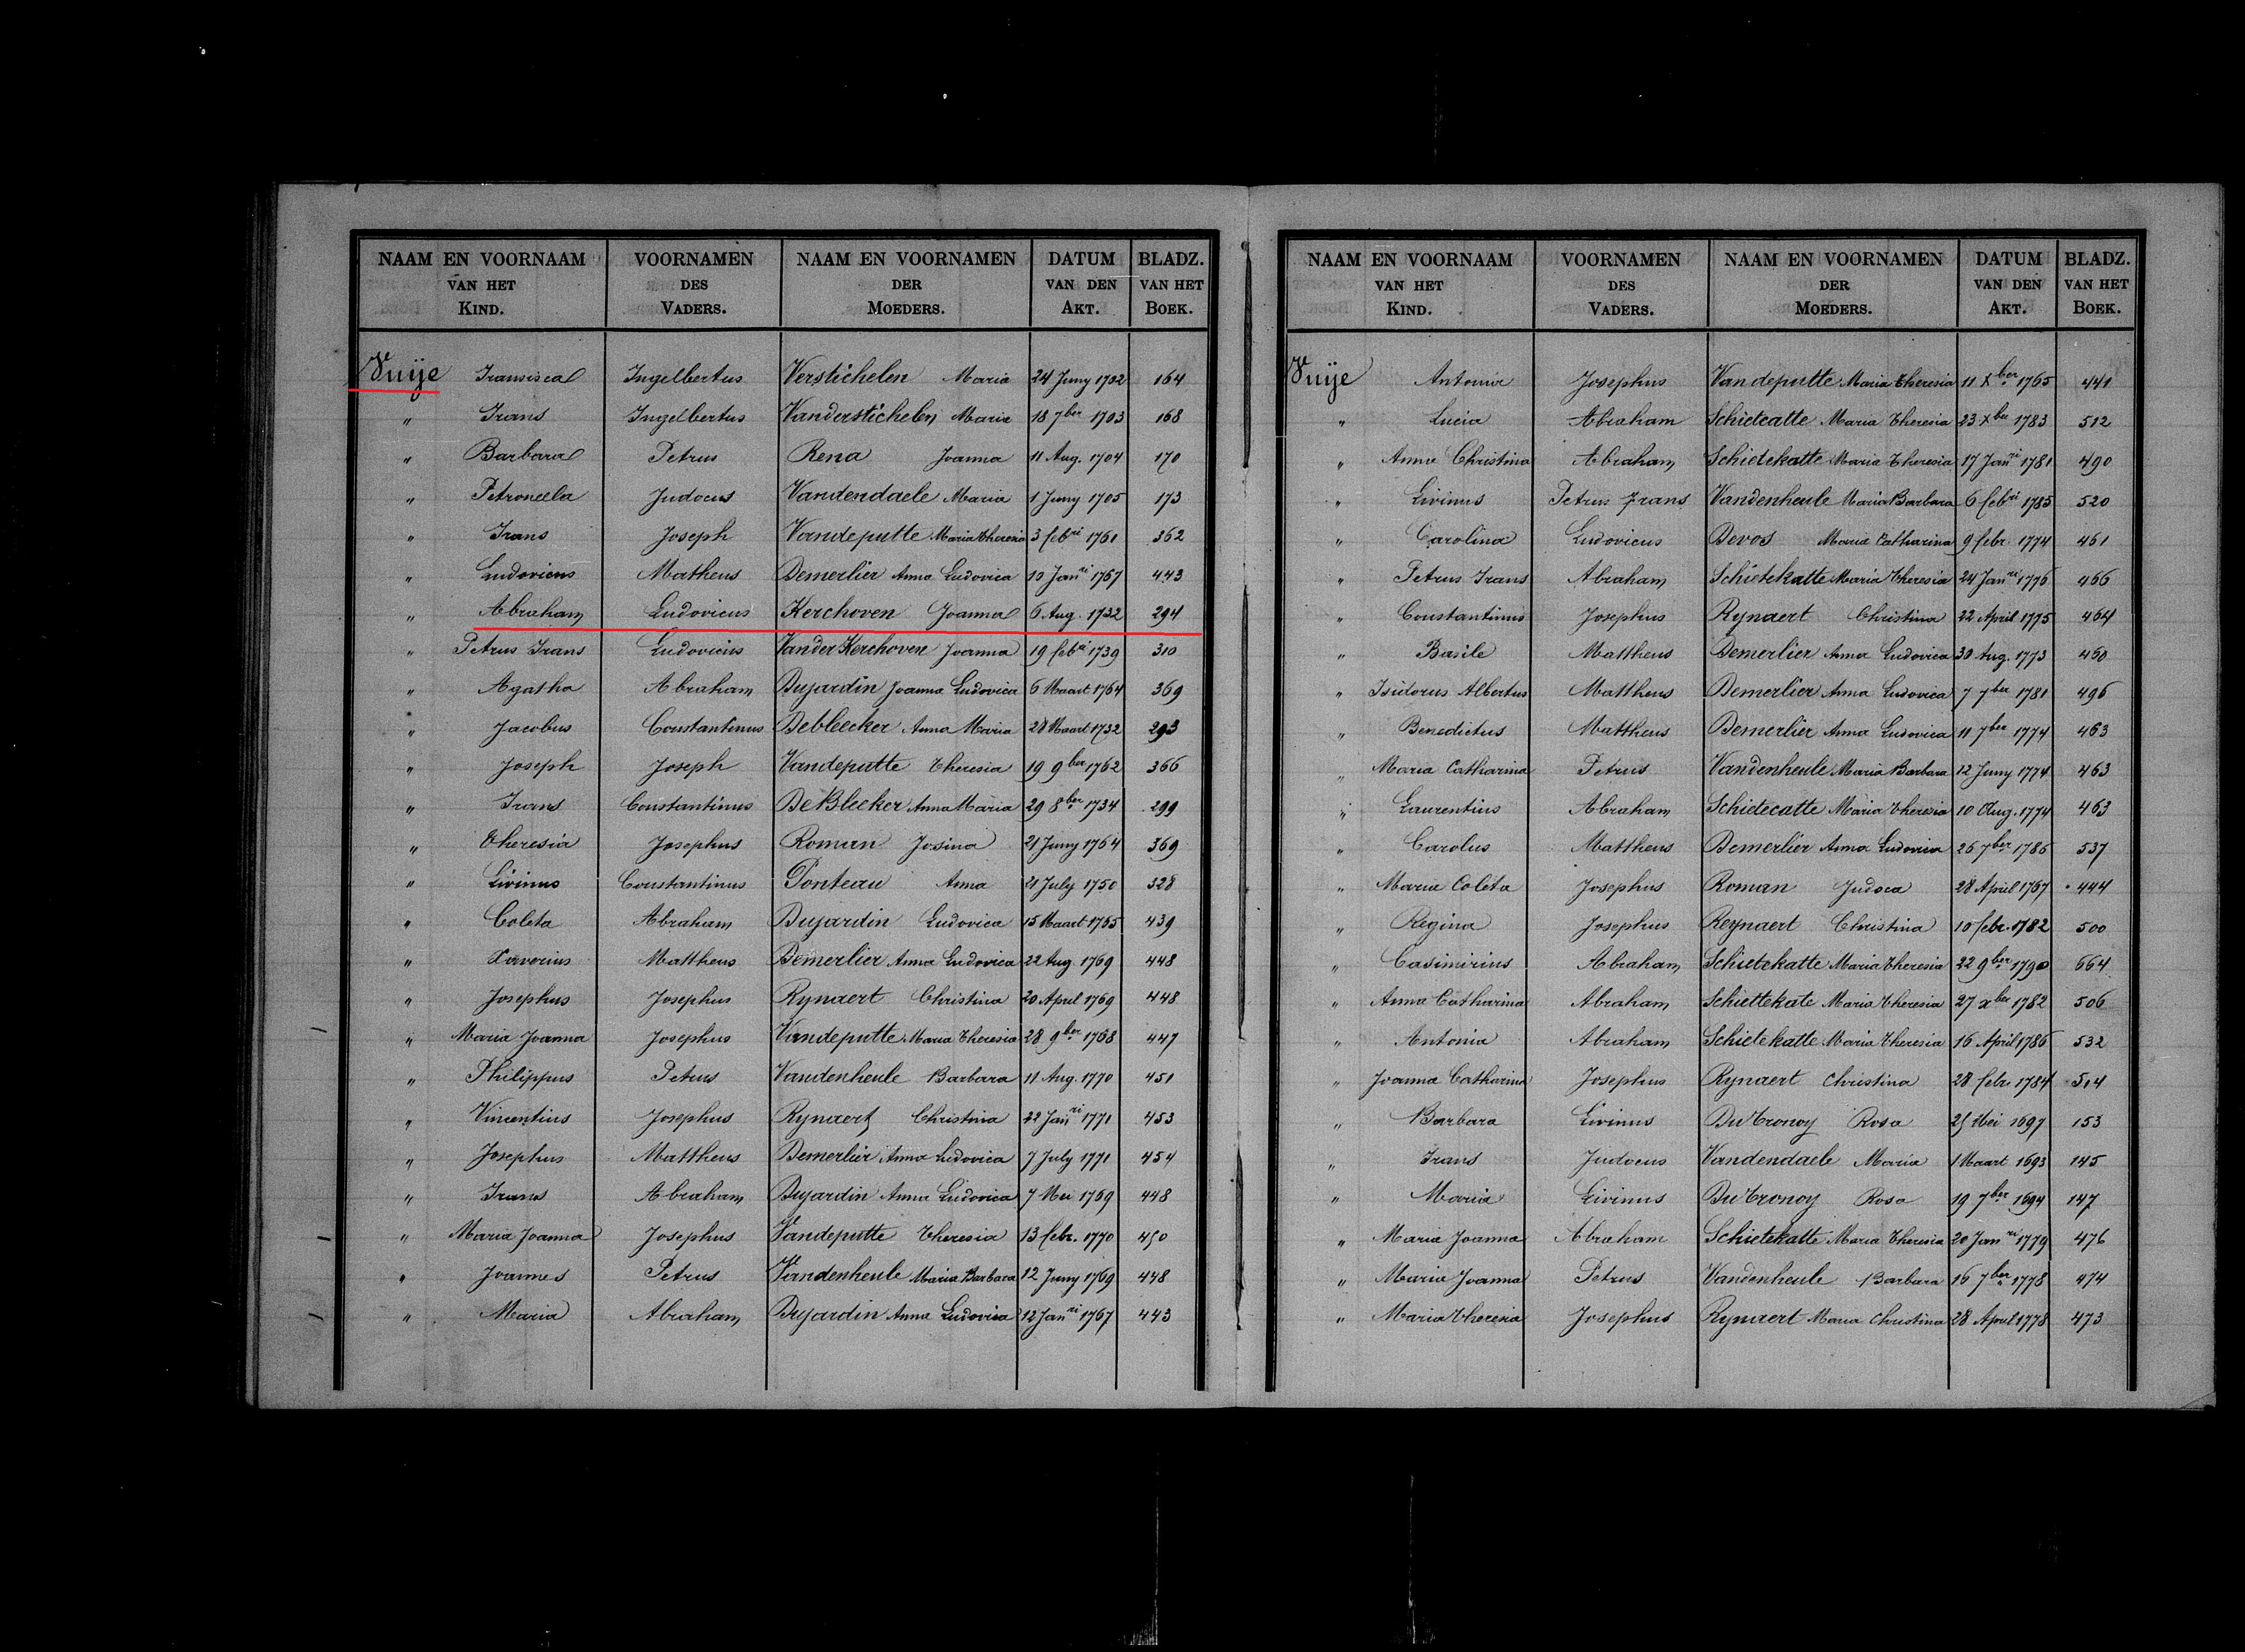 NAAM EN VOORNAAM VAN HET KIND. VOORNAMEN DES VADERS. NAAM EN VOORNAMEN DER MOEDERS. DATUM VAN DEN AKT. BLADZ. VAN HET BOEK.
Vuije Fransisca Ingelbertus Verstichelen Maria 24 Juny 1702 164
" Frans Ingelbertus Vanderstichelen Maria 18 7ber 1703 168
" Barbara Petrus Rena Joanna 11 Aug. 1704 170
" Petronella Judocus Vandendaele Maria 1 Juny 1705 173
" Frans Joseph Vandeputte Maria Theresia 3 febri 1761 362
" Ludovicus Matheus Demerlier Anna Ludovica 10 Janri 1767 443
" Abraham Ludovicus Kerchoven Joanna 6 Aug. 1732 294
" Petrus Frans Ludovicus Vander Kerchoven Joanna 19 febri 1739 310
" Agatha Abraham Dujardin Joanna Ludovica 6 Maart 1764 369
" Jacobus Constantinus Debleecker Anna Maria 28 Maart 1732 293
" Joseph Joseph Vandeputte Theresia 19 9ber 1762 366
" Frans Constantinus De Bleeker Anna Maria 29 8ber 1734 299
" Theresia Josephus Roman Josina 21 Juny 1764 369
" Livinus Constantinus Ponteau Anna 21 July 1750 328
" Coleta Abraham Dujardin Ludovica 15 Maart 1765 439
" Xaverius Mattheus Demerlier Anna Ludovica 22 Aug. 1769 448
" Josephus Josephus Rynaert Christina 20 April 1769 448
" Maria Joanna Josephus Vandeputte Maria Theresia 28 9ber 1768 447
" Philippus Petrus Vandenheule Barbara 11 Aug. 1770 451
" Vincentius Josephus Rynaert Christina 22 Janri 1771 453
" Josephus Mattheus Demerlier Anna Ludovica 7 July 1771 454
" Frans Abraham Dujardin Anna Ludovica 7 Mei 1769 448
" Maria Joanna Josephus Vandeputte Theresia 13 febr. 1770 450
" Joannes Petrus Vandenheule Maria Barbara 12 Juny 1769 448
" Maria Abraham Dujardin Anna Ludovica 12 Janri 1767 443
NAAM EN VOORNAAM VAN HET KIND. VOORNAMEN DES VADERS. NAAM EN VOORNAMEN DER MOEDERS. DATUM VAN DEN AKT. BLADZ. VAN HET BOEK.
Vuije Antonia Josephus Vandeputte Maria Theresia 11 Xber 1765 441
" Lucia Abraham Schietcatte Maria Theresia 23 Xber 1783 512
" Anna Christina Abraham Schietekatte Maria Theresia 17 Janri 1781 490
" Livinus Petrus Frans Vandenheule Maria Barbara 6 febri 1785 520
" Carolina Ludovicus Devos Maria Catharina 9 febr. 1774 461
" Petrus Frans Abraham Schietekatte Maria Theresia 24 Janri 1776 466
" Constantinus Josephus Rynaert Christina 22 April 1775 464
" Basile Mattheus Demerlier Anna Ludovica 30 Aug. 1773 460
" Isidorus Albertus Mattheus Demerlier Anna Ludovica 7 7ber 1781 496
" Benedictus Mattheus Demerlier Anna Ludovica 11 7ber 1774 463
" Maria Catharina Petrus Vandenheule Maria Barbara 12 Juny 1774 463
" Laurentius Abraham Schietecatte Maria Theresia 10 Aug. 1774 463
" Carolus Mattheus Demerlier Anna Ludovica 26 7ber 1786 537
" Maria Coleta Josephus Roman Judoca 28 April 1767 444
" Regina Josephus Reynaert Christina 10 febr. 1782 500
" Casimirius Abraham Schietekatte Maria Theresia 22 9ber 1790 664
" Anna Catharina Abraham Schiettekate Maria Theresia 27 xber 1782 506
" Antonia Abraham Schietekatte Maria Theresia 16 April 1786 532
" Joanna Catharina Josephus Rynaert Christina 28 febr. 1784 514
" Barbara Livinus Du Tronoy Rosa 25 Mei 1697 153
" Frans Judocus Vandendaele Maria 1 Maart 1693 145
" Maria Livinus Du Tronoy Rosa 19 7ber 1694 147
" Maria Joanna Abraham Schietekatte Maria Theresia 20 Janri 1779 476
" Maria Joanna Petrus Vandenheule Barbara 16 7ber 1778 474
" Maria Theresia Josephus Rynaert Maria Christina 28 April 1778 473